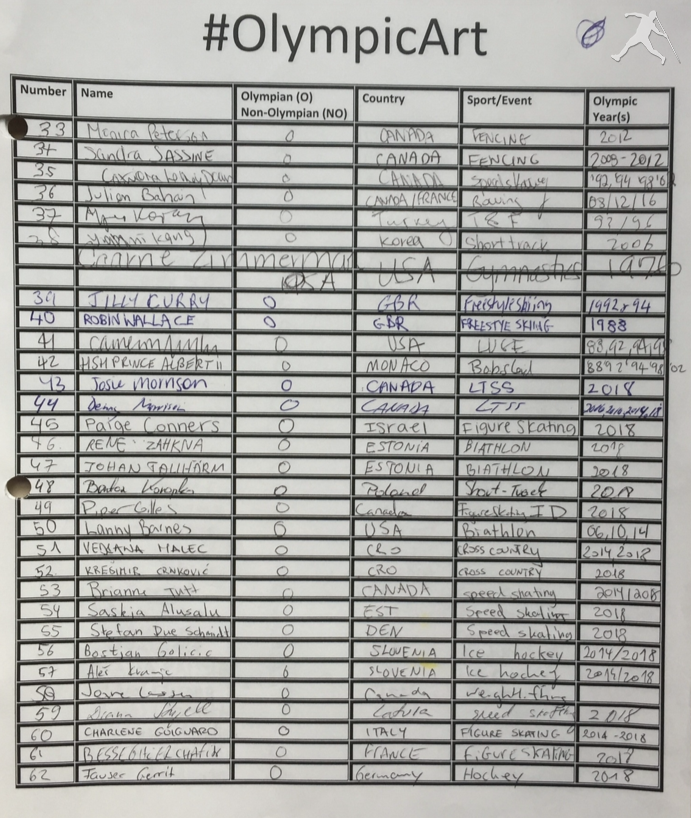 #OlympicArt
Number Name Olympian (O) Non-Olympian (NO) Country Sport/Event Olympic Year(s)
33 Monica Peterson O CANADA FENCING 2012
34 Sandra SASSINE O CANADA FENCING 2008-2012
35 O CANADA Speedskating '92,'94
36 Julien Bahain O CANADA/FRANCE Rowing 08/12/16
37 O Turkey T&F 92/96
38 O Korea Short track 2006
Zimmerman USA Gymnastics 1976
39 JILLY CURRY O GBR Freestyle skiing 1992+94
40 ROBIN WALLACE O GBR FREESTYE SKIING 1988
41 O USA LUGE 88,92,94,98
42 HSH PRINCE ALBERT II O MONACO Bobsled 88 92 '94 '98 '02
43 Josie Morrison O CANADA LTSS 2018
44 Denny Morrison O CANADA LTSS
45 Paige Conners O Israel Figure Skating 2018
46 RENE ZAHKNA O ESTONIA BIATHLON 2018
47 JOHAN TALIHÄRM O ESTONIA BIATHLON 2018
48 O Poland Short-Track 2018
49 Piper Gilles O Canada Figure Skating ID 2018
50 Lanny Barnes O USA Biathlon 06,10,14
51 VEDRANA MALEC O CRO CROSS COUNTRY 2014 2018
52 KREŠIMIR CRNKOVIĆ O CRO CROSS COUNTRY 2018
53 Brianne Tutt O CANADA speed skating 2014/2018
54 Saskia Alusalu O EST Speed skating 2018
55 Stefan Due Schmidt O DEN Speed skating 2018
56 Bostjan Golicic O SLOVENIA Ice hockey 2014/2018
57 Aleš Kranjc O SLOVENIA Ice hockey 2014/2018
58 O Canada
59 O 2018
60 CHARLENE GUIGNARD O ITALY FIGURE SKATING 2014-2018
61 O FRANCE FIGURE SKATING
62 Fauser Gerrit O Germany Hockey 2018